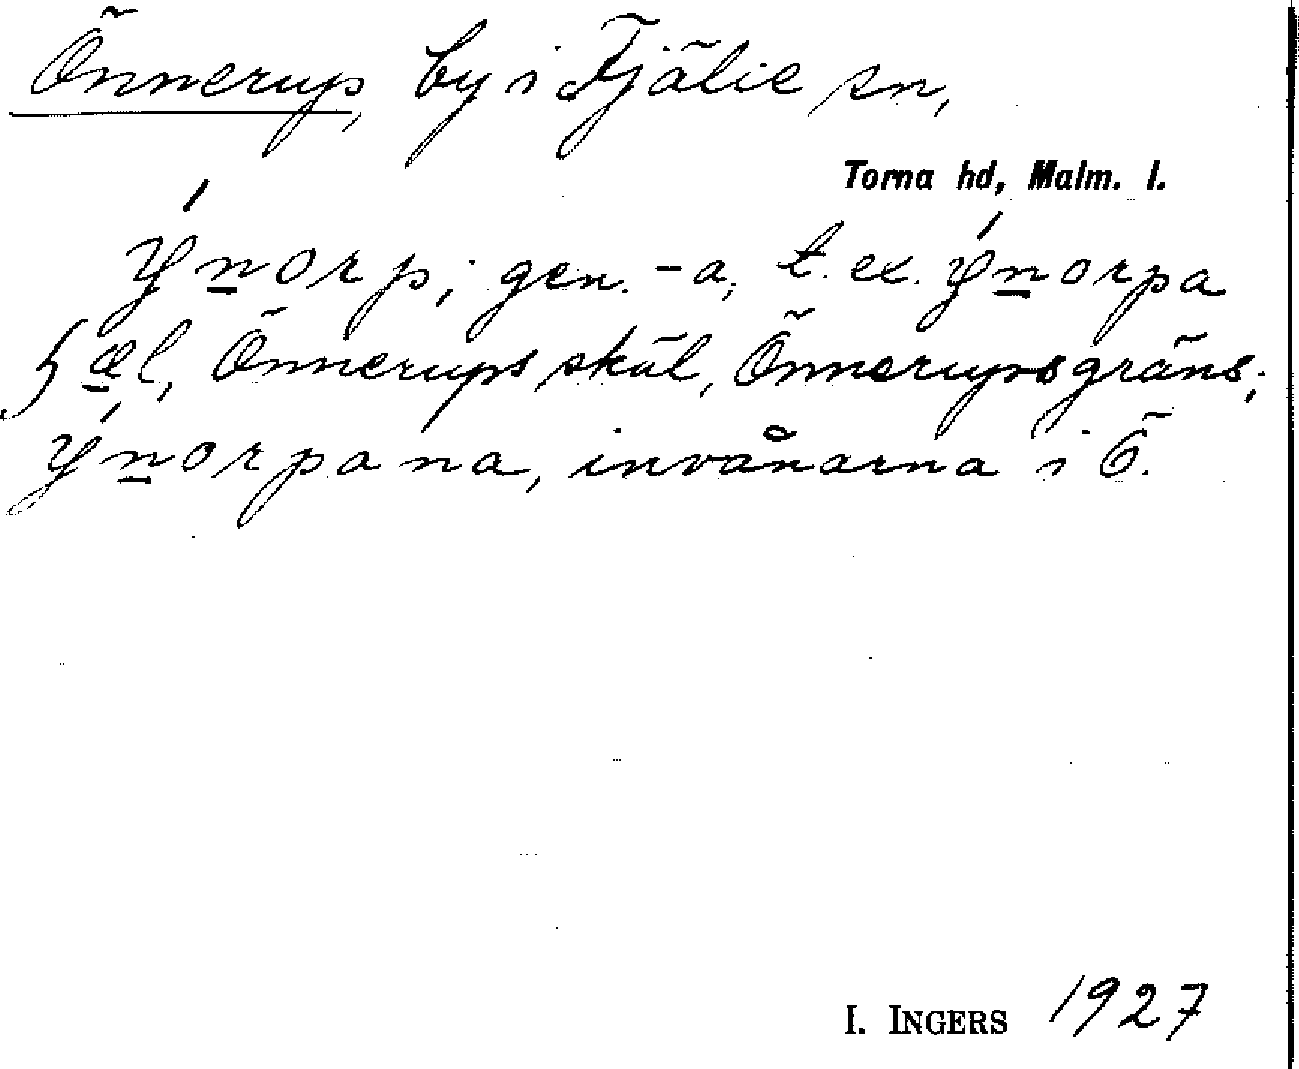 Önnerup, by i Fjälie sn,
Torna hd, Malm. l.
ýn̲orp; gen. -a, t. ex. ýn̲orpa
ʃæ̲l, Önnerups skäl, Önnerupsgräns;
ýn̲orpana, invånarna i Ö.
I. INGERS 1927